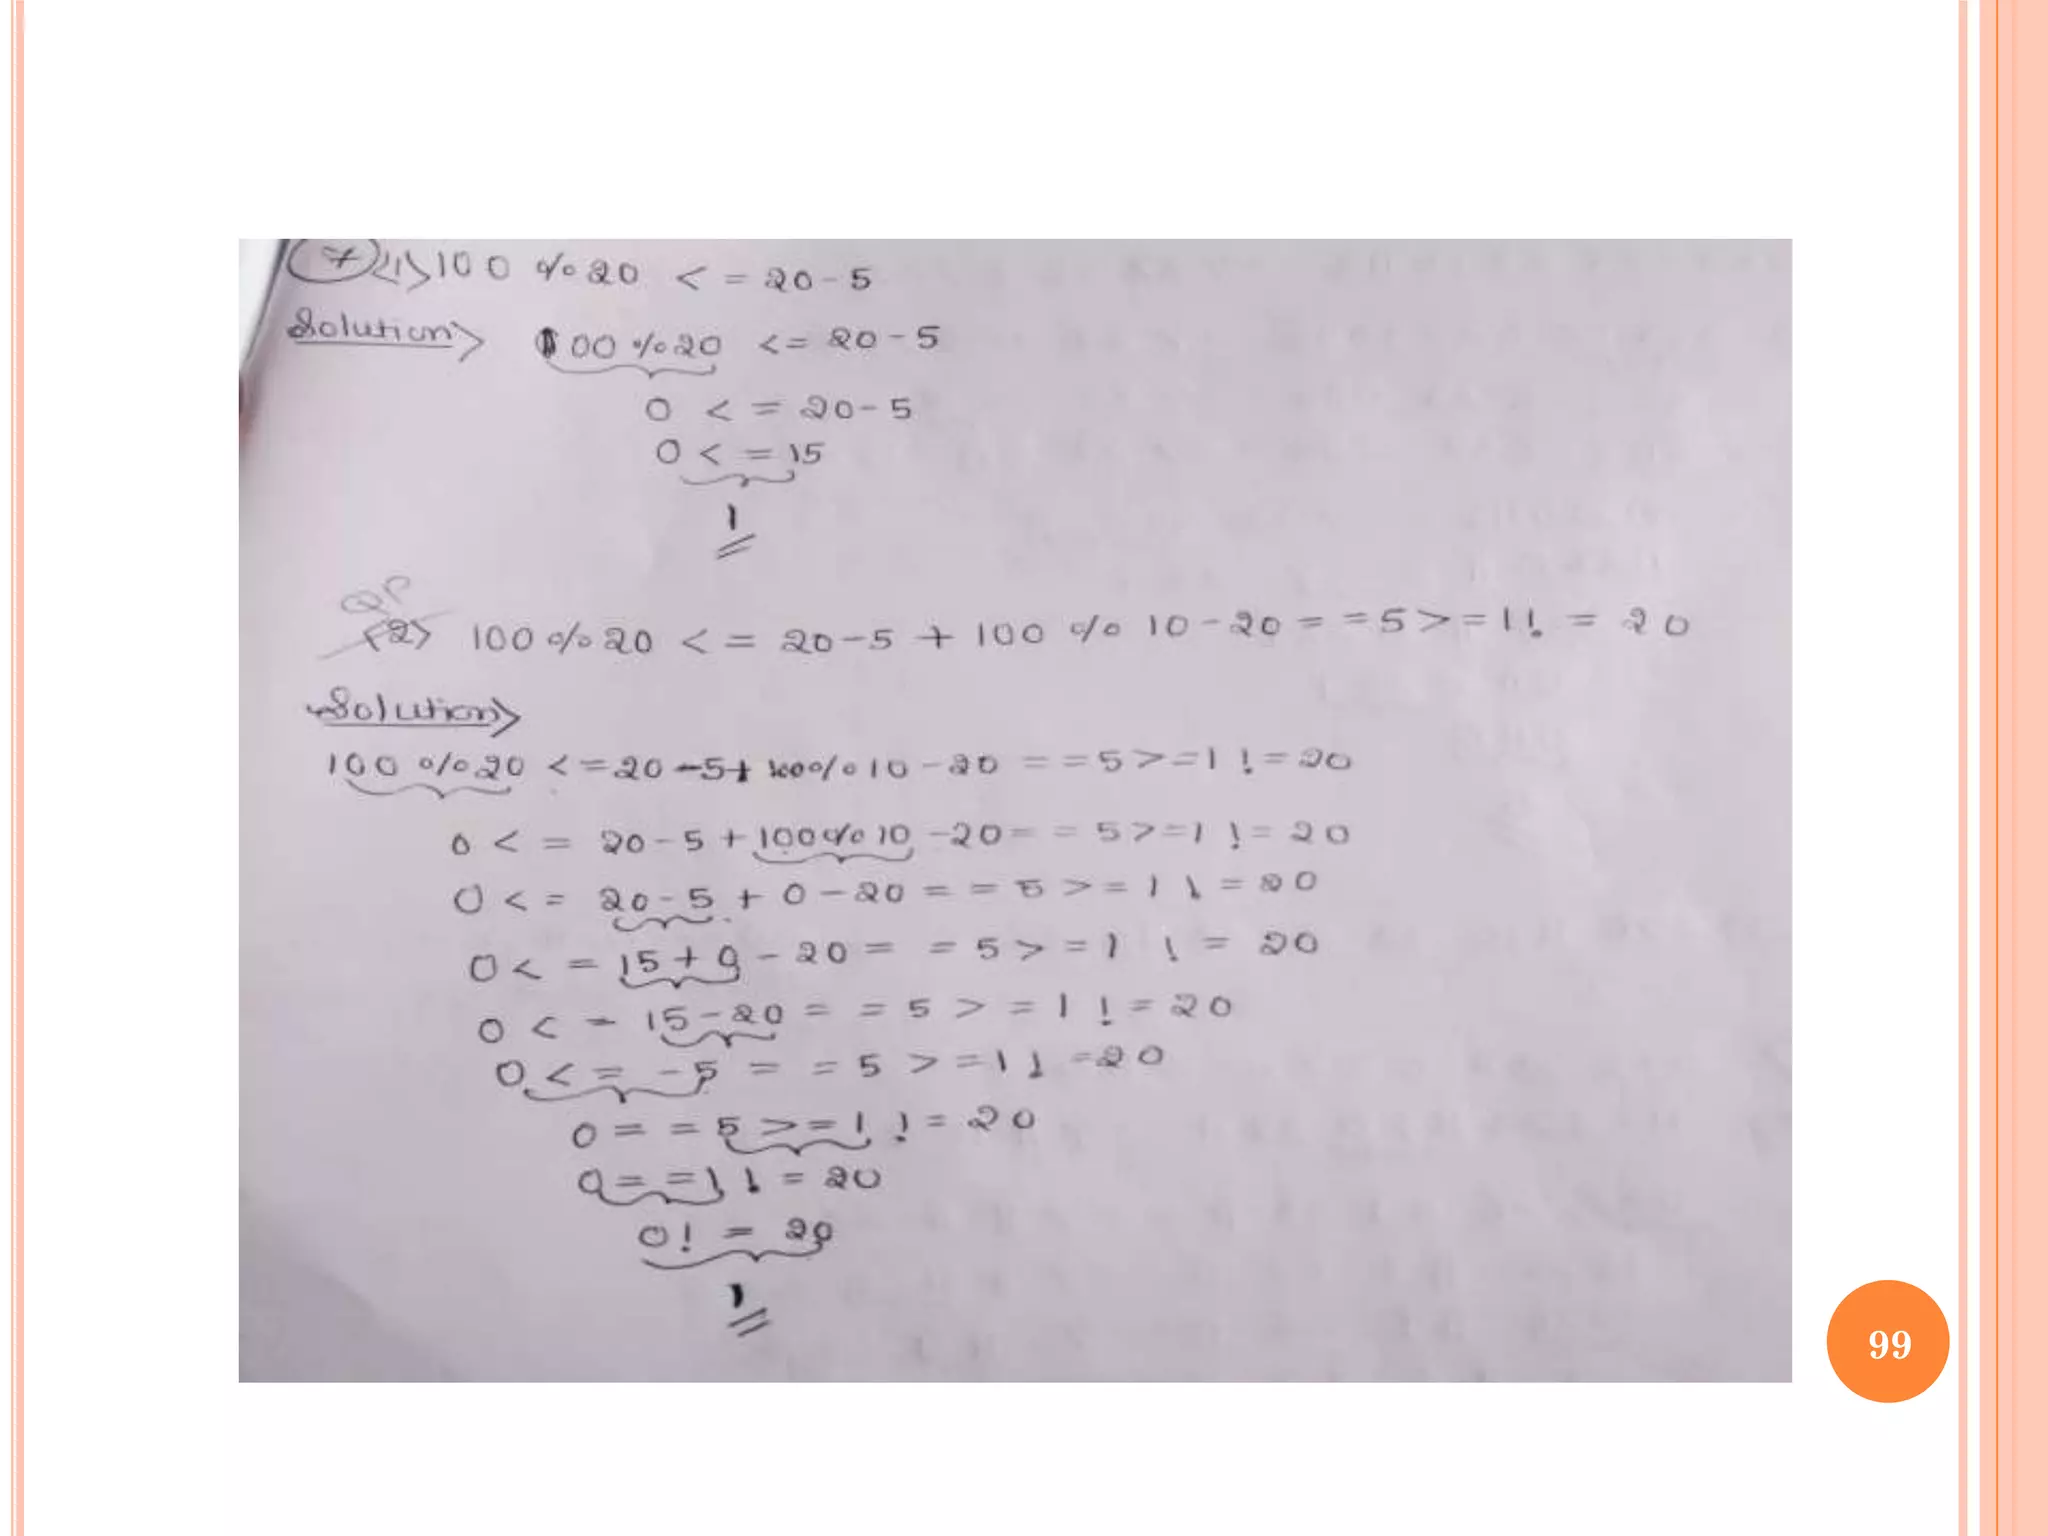 7 <1> 100 % 20 < = 20 - 5
Solution> 100 % 20 <= 20 - 5
0 < = 20 - 5
0 < = 15
1
QP
<2> 100 % 20 < = 20 - 5 + 100 % 10 - 20 = = 5 > = 1 ! = 20
Solution>
100 % 20 < = 20 - 5 + 100 % 10 - 20 = = 5 > = 1 ! = 20
0 < = 20 - 5 + 100 % 10 - 20 = = 5 > = 1 ! = 20
0 < = 20 - 5 + 0 - 20 = = 5 > = 1 ! = 20
0 < = 15 + 0 - 20 = = 5 > = 1 ! = 20
0 < = 15 - 20 = = 5 > = 1 ! = 20
0 < = - 5 = = 5 > = 1 ! = 20
0 = = 5 > = 1 ! = 20
0 = = 1 ! = 20
0 ! = 20
1
99